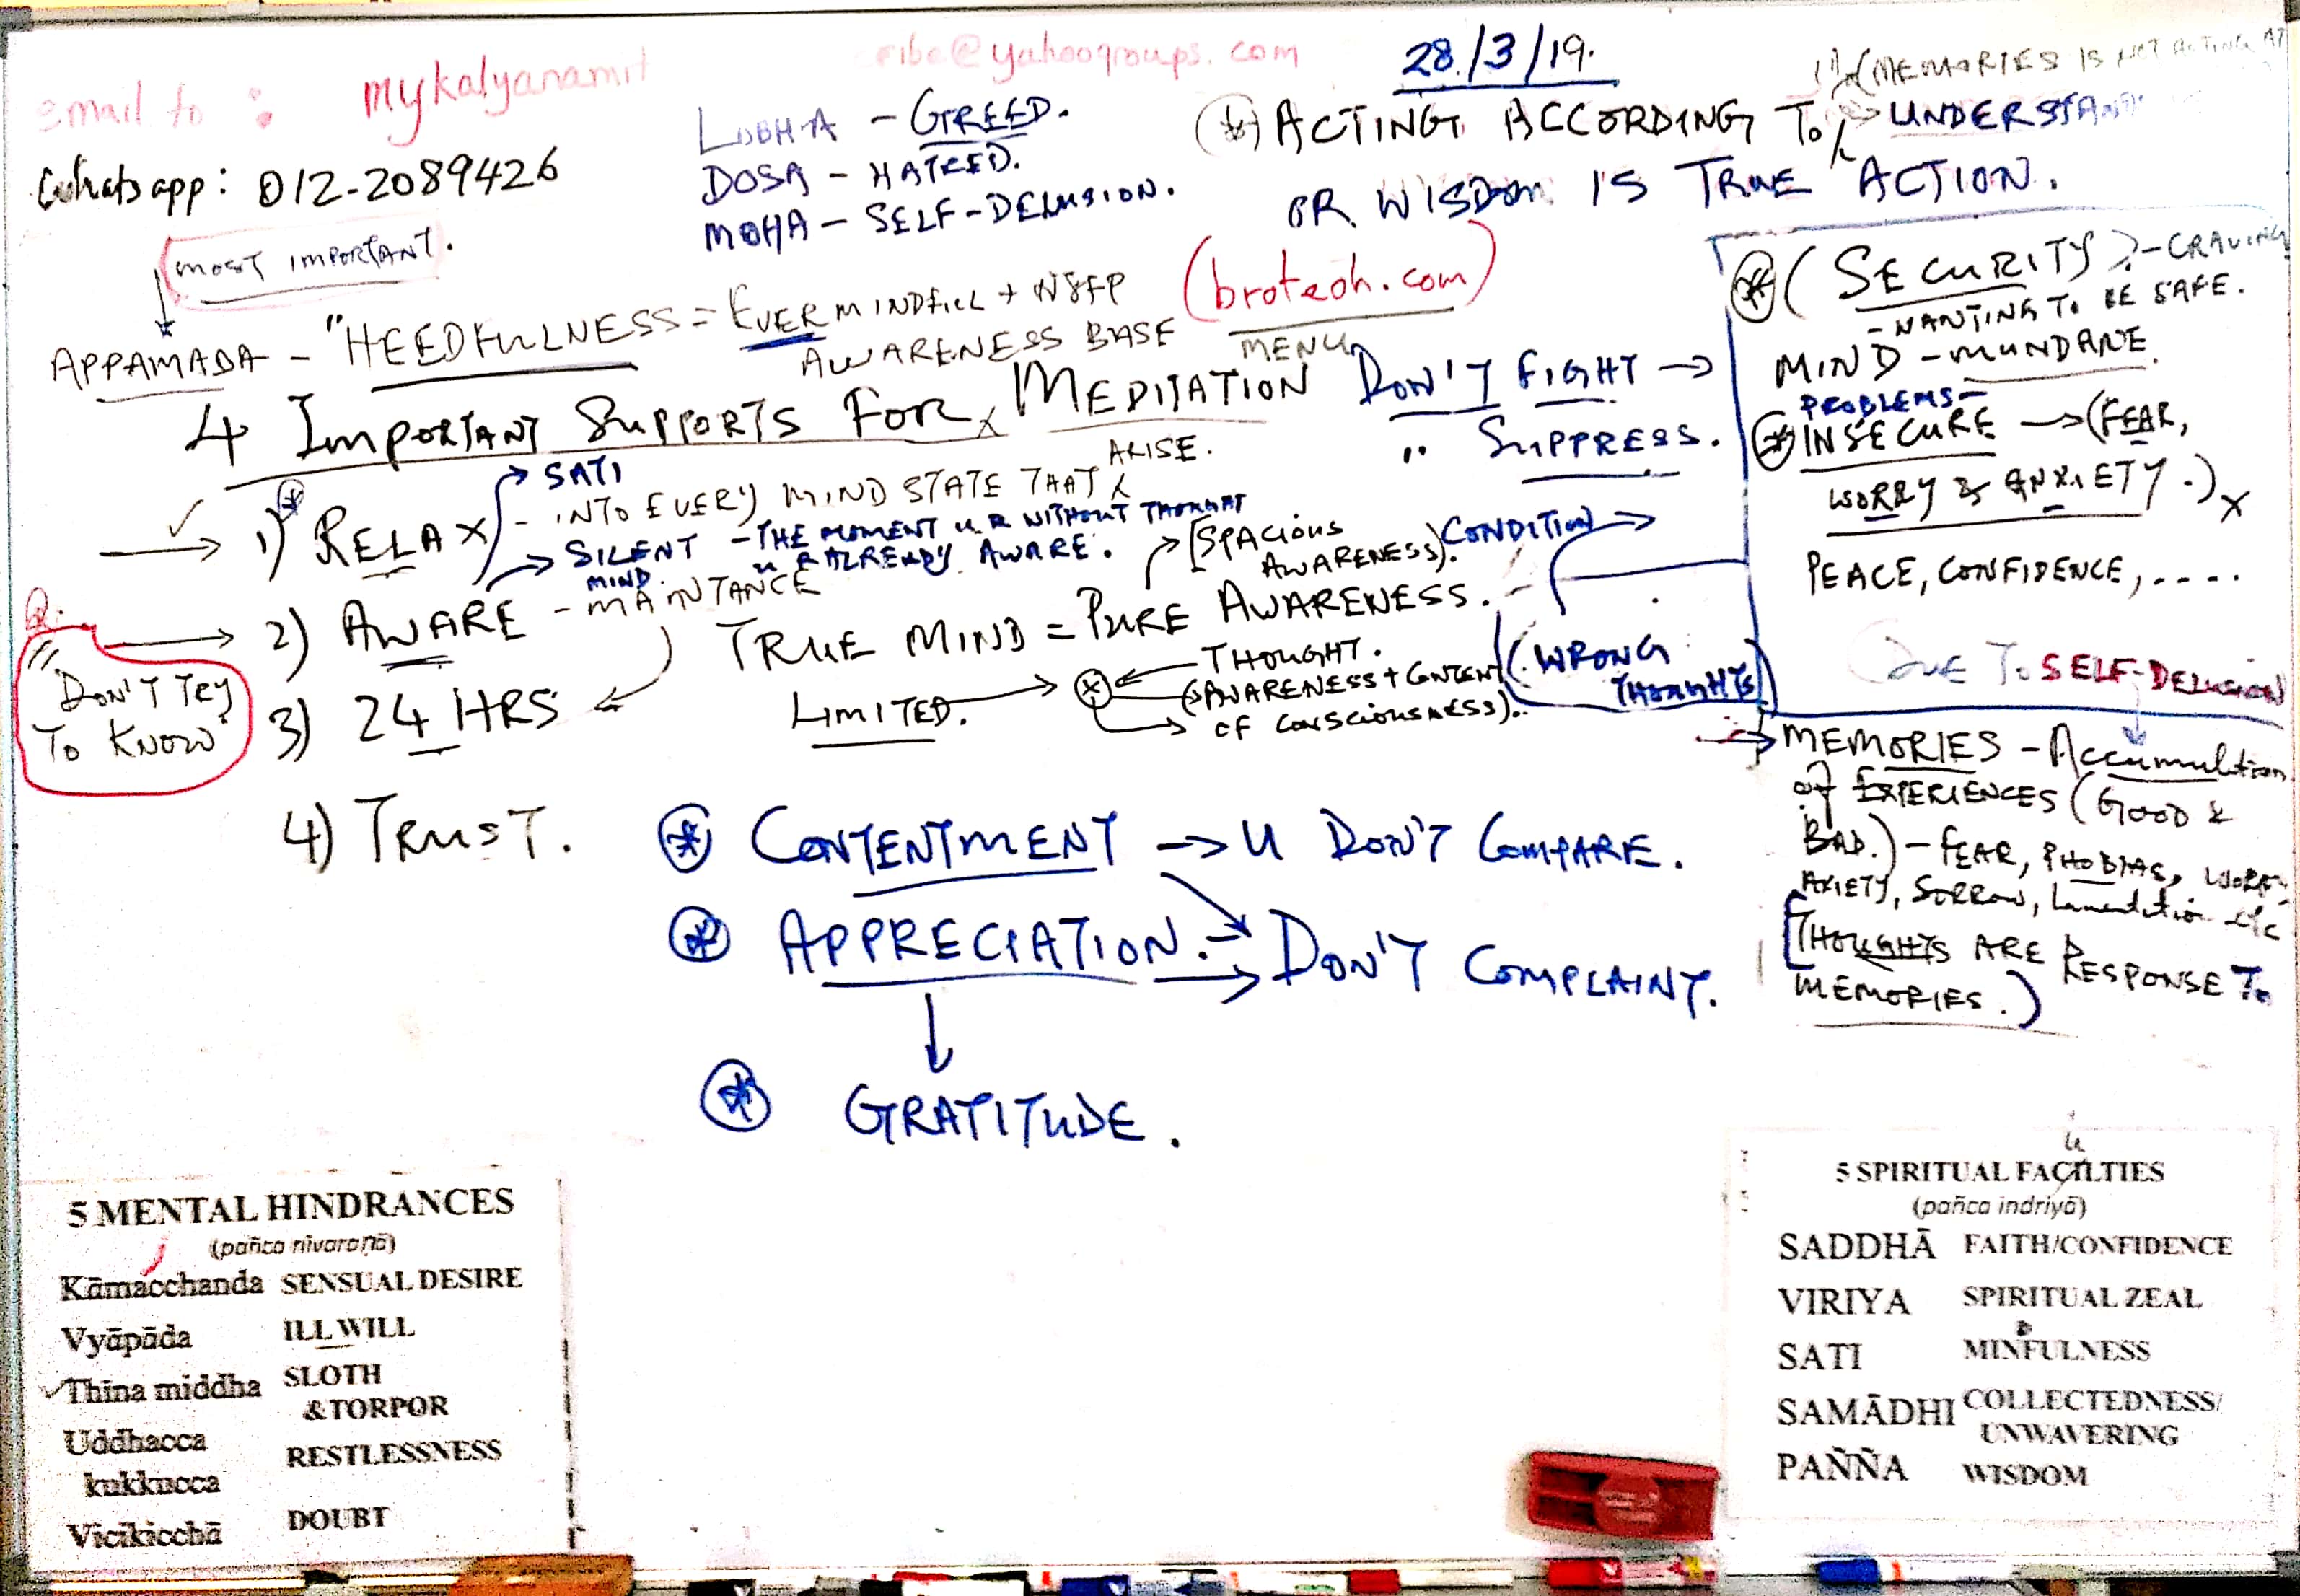 email to : mykalyanamit ribe@yahoogroups.com
Whatsapp: 012-2089426
28/3/19.
LOBHA - GREED.
DOSA - HATRED.
MOHA - SELF-DELUSION.
(MEMORIES IS NOT ACTING
ACTING ACCORDING TO UNDERSTAN
OR WISDOM IS TRUE ACTION.
MOST IMPORTANT.
APPAMADA - "HEEDFULNESS = EVER MINDFULL +
AWARENESS BASE
(broteoh.com)
MENU
4 IMPORTANT SUPPORTS FOR MEDITATION
DON'T FIGHT →
" SUPPRESS.
1) RELAX - INTO EVERY MIND STATE THAT ARISE.
→ SATI
→ SILENT MIND - THE MOMENT U R WITHOUT THOUGHT
U R ALREADY AWARE.
2) AWARE - MAINTANCE
3) 24 HRS
4) TRUST.
"DON'T TRY
TO KNOW"
TRUE MIND = PURE AWARENESS.
[SPACIOUS
AWARENESS).
CONDITION →
LIMITED. →
THOUGHT.
(AWARENESS + CONTENT
OF CONSCIOUSNESS).
(WRONG
THOUGHTS)
(SECURITY) - CRAVING
- WANTING TO BE SAFE.
MIND - MUNDANE.
PROBLEMS -
INSECURE → (FEAR,
WORRY & ANXIETY.)
PEACE, CONFIDENCE, ....
DUE TO SELF-DELUSION
→ MEMORIES - Accumulation
of EXPERIENCES (GOOD &
BAD.) - FEAR, PHOBIAS,
AXIETY, SORROW, Lamentation etc
[THOUGHTS ARE RESPONSE TO
MEMORIES.)
CONTENTMENT → U DON'T COMPARE.
APPRECIATION. → DON'T COMPLAINT.
GRATITUDE.
5 MENTAL HINDRANCES
(pañca nīvaraṇā)
Kāmacchanda SENSUAL DESIRE
Vyāpāda ILL WILL
Thīna middha SLOTH
&TORPOR
Uddhacca RESTLESSNESS
kukkucca
Vicikicchā DOUBT
u
5 SPIRITUAL FACILTIES
(pañca indriyā)
SADDHĀ FAITH/CONFIDENCE
VIRIYA SPIRITUAL ZEAL
D
SATI MINFULNESS
SAMĀDHI COLLECTEDNESS/
UNWAVERING
PAÑÑA WISDOM